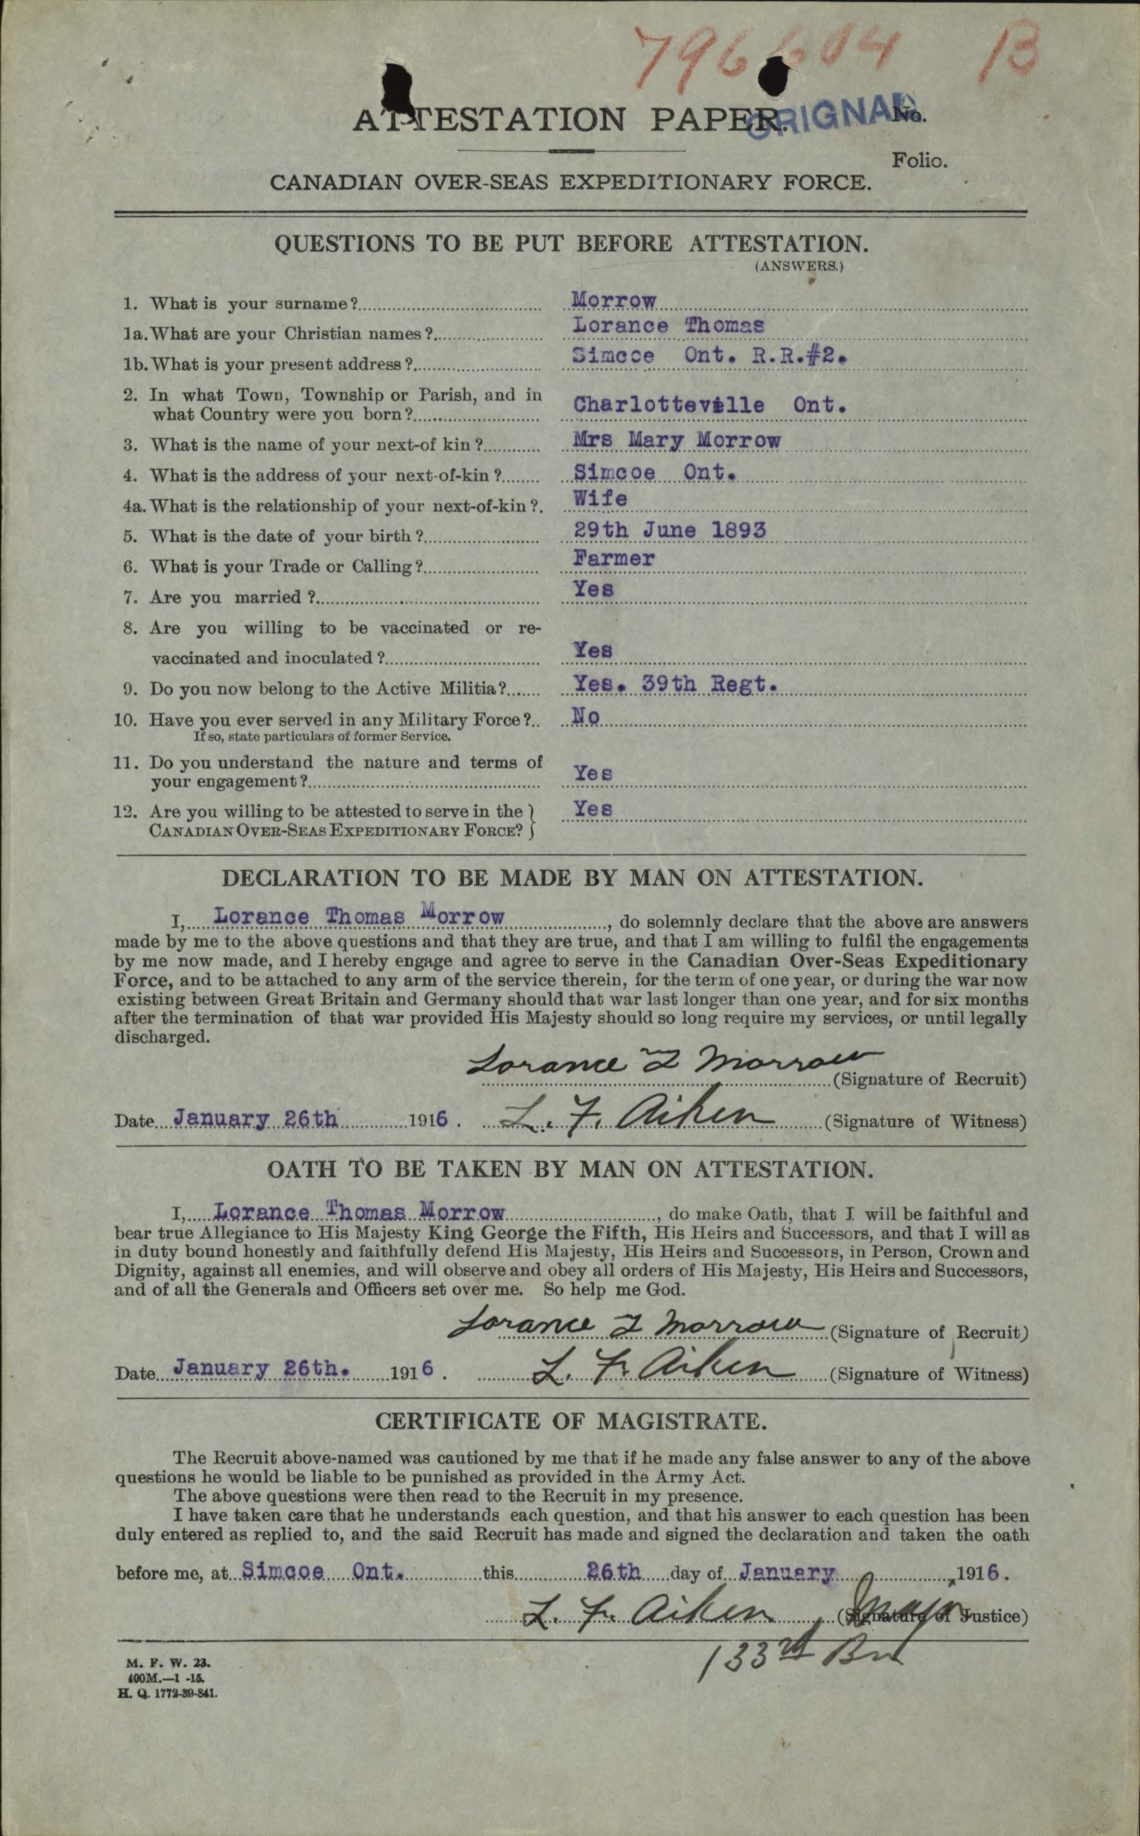 796604 B
ATTESTATION PAPER. No.
ORIGNAL
Folio.
CANADIAN OVER-SEAS EXPEDITIONARY FORCE.
QUESTIONS TO BE PUT BEFORE ATTESTATION.
(ANSWERS.)
1. What is your surname? Morrow
1a. What are your Christian names? Lorance Thomas
1b. What is your present address? Simcoe Ont. R.R.#2.
2. In what Town, Township or Parish, and in
what Country were you born? Charlotteville Ont.
3. What is the name of your next-of kin? Mrs Mary Morrow
4. What is the address of your next-of-kin? Simcoe Ont.
4a. What is the relationship of your next-of-kin? Wife
5. What is the date of your birth? 29th June 1893
6. What is your Trade or Calling? Farmer
7. Are you married? Yes
8. Are you willing to be vaccinated or re-
vaccinated and inoculated? Yes
9. Do you now belong to the Active Militia? Yes. 39th Regt.
10. Have you ever served in any Military Force? No
If so, state particulars of former Service.
11. Do you understand the nature and terms of
your engagement? Yes
12. Are you willing to be attested to serve in the Yes
CANADIAN OVER-SEAS EXPEDITIONARY FORCE?
DECLARATION TO BE MADE BY MAN ON ATTESTATION.
I, Lorance Thomas Morrow, do solemnly declare that the above are answers
made by me to the above questions and that they are true, and that I am willing to fulfil the engagements
by me now made, and I hereby engage and agree to serve in the Canadian Over-Seas Expeditionary
Force, and to be attached to any arm of the service therein, for the term of one year, or during the war now
existing between Great Britain and Germany should that war last longer than one year, and for six months
after the termination of that war provided His Majesty should so long require my services, or until legally
discharged.
Lorance T Morrow (Signature of Recruit)
Date January 26th 1916. L. F. Aiken (Signature of Witness)
OATH TO BE TAKEN BY MAN ON ATTESTATION.
I, Lorance Thomas Morrow, do make Oath, that I will be faithful and
bear true Allegiance to His Majesty King George the Fifth, His Heirs and Successors, and that I will as
in duty bound honestly and faithfully defend His Majesty, His Heirs and Successors, in Person, Crown and
Dignity, against all enemies, and will observe and obey all orders of His Majesty, His Heirs and Successors,
and of all the Generals and Officers set over me. So help me God.
Lorance T Morrow (Signature of Recruit)
Date January 26th. 1916. L. F. Aiken (Signature of Witness)
CERTIFICATE OF MAGISTRATE.
The Recruit above-named was cautioned by me that if he made any false answer to any of the above
questions he would be liable to be punished as provided in the Army Act.
The above questions were then read to the Recruit in my presence.
I have taken care that he understands each question, and that his answer to each question has been
duly entered as replied to, and the said Recruit has made and signed the declaration and taken the oath
before me, at Simcoe Ont. this 26th day of January, 1916.
L. F. Aiken, Major (Signature of Justice)
133rd Bn
M. F. W. 23.
400M.—1-15.
H. Q. 1772-39-841.